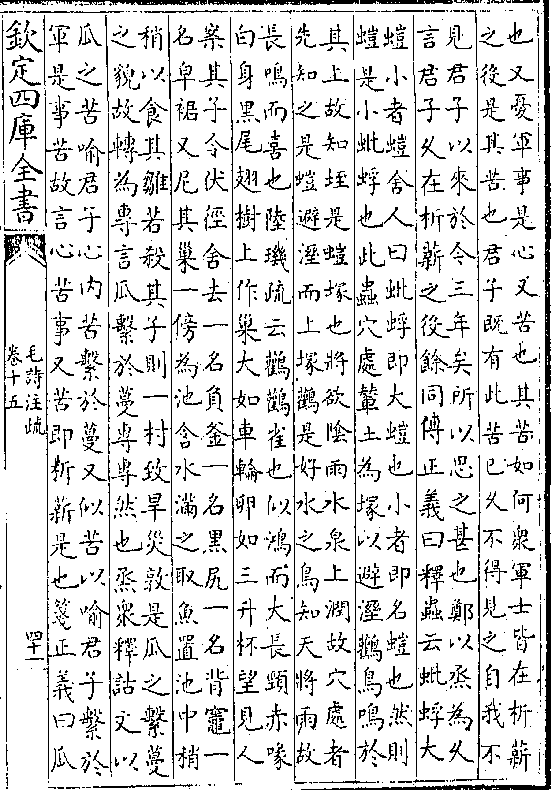 也又憂軍事是心又苦也其苦如何衆軍士皆在析薪
之後是其苦也君子既有此苦已久不得見之自我不
見君子以來於今三年矣所以思之甚也鄭以烝為久
言君子久在析薪之後餘同傳正義曰釋蟲云蚍蜉大
螘小者螘舍人曰蚍蜉即大螘也小者即名螘也然則
螘是小蚍蜉也此蟲穴處輦土為塚以避溼鸛鳥鳴於
其上故知垤是螘塚也將欲隂雨水泉上潤故穴處者
先知之是螘避溼而上塚鸛是好水之鳥知天將雨故
長鳴而喜也陸璣疏云鸛鸛雀也似鴻而大長頸赤喙
白身黑尾翅樹上作巢大如車輪卵如三升杯望見人
案其子令伏徑舍去一名負釜一名黑尻一名背竈一
名皁裙又尼其巢一傍為池含水滿之取魚置池中稍
稍以食其雛若殺其子則一村致旱災敦是瓜之繫蔓
之貌故轉為專言瓜繫於蔓専専然也烝衆釋詁文以
瓜之苦喻君子心内苦繫於蔓又似苦以喻君子繫於
軍是事苦故言心苦事又苦即析薪是也箋正義曰瓜
欽定四庫全書
毛詩注疏
卷十五
四十一